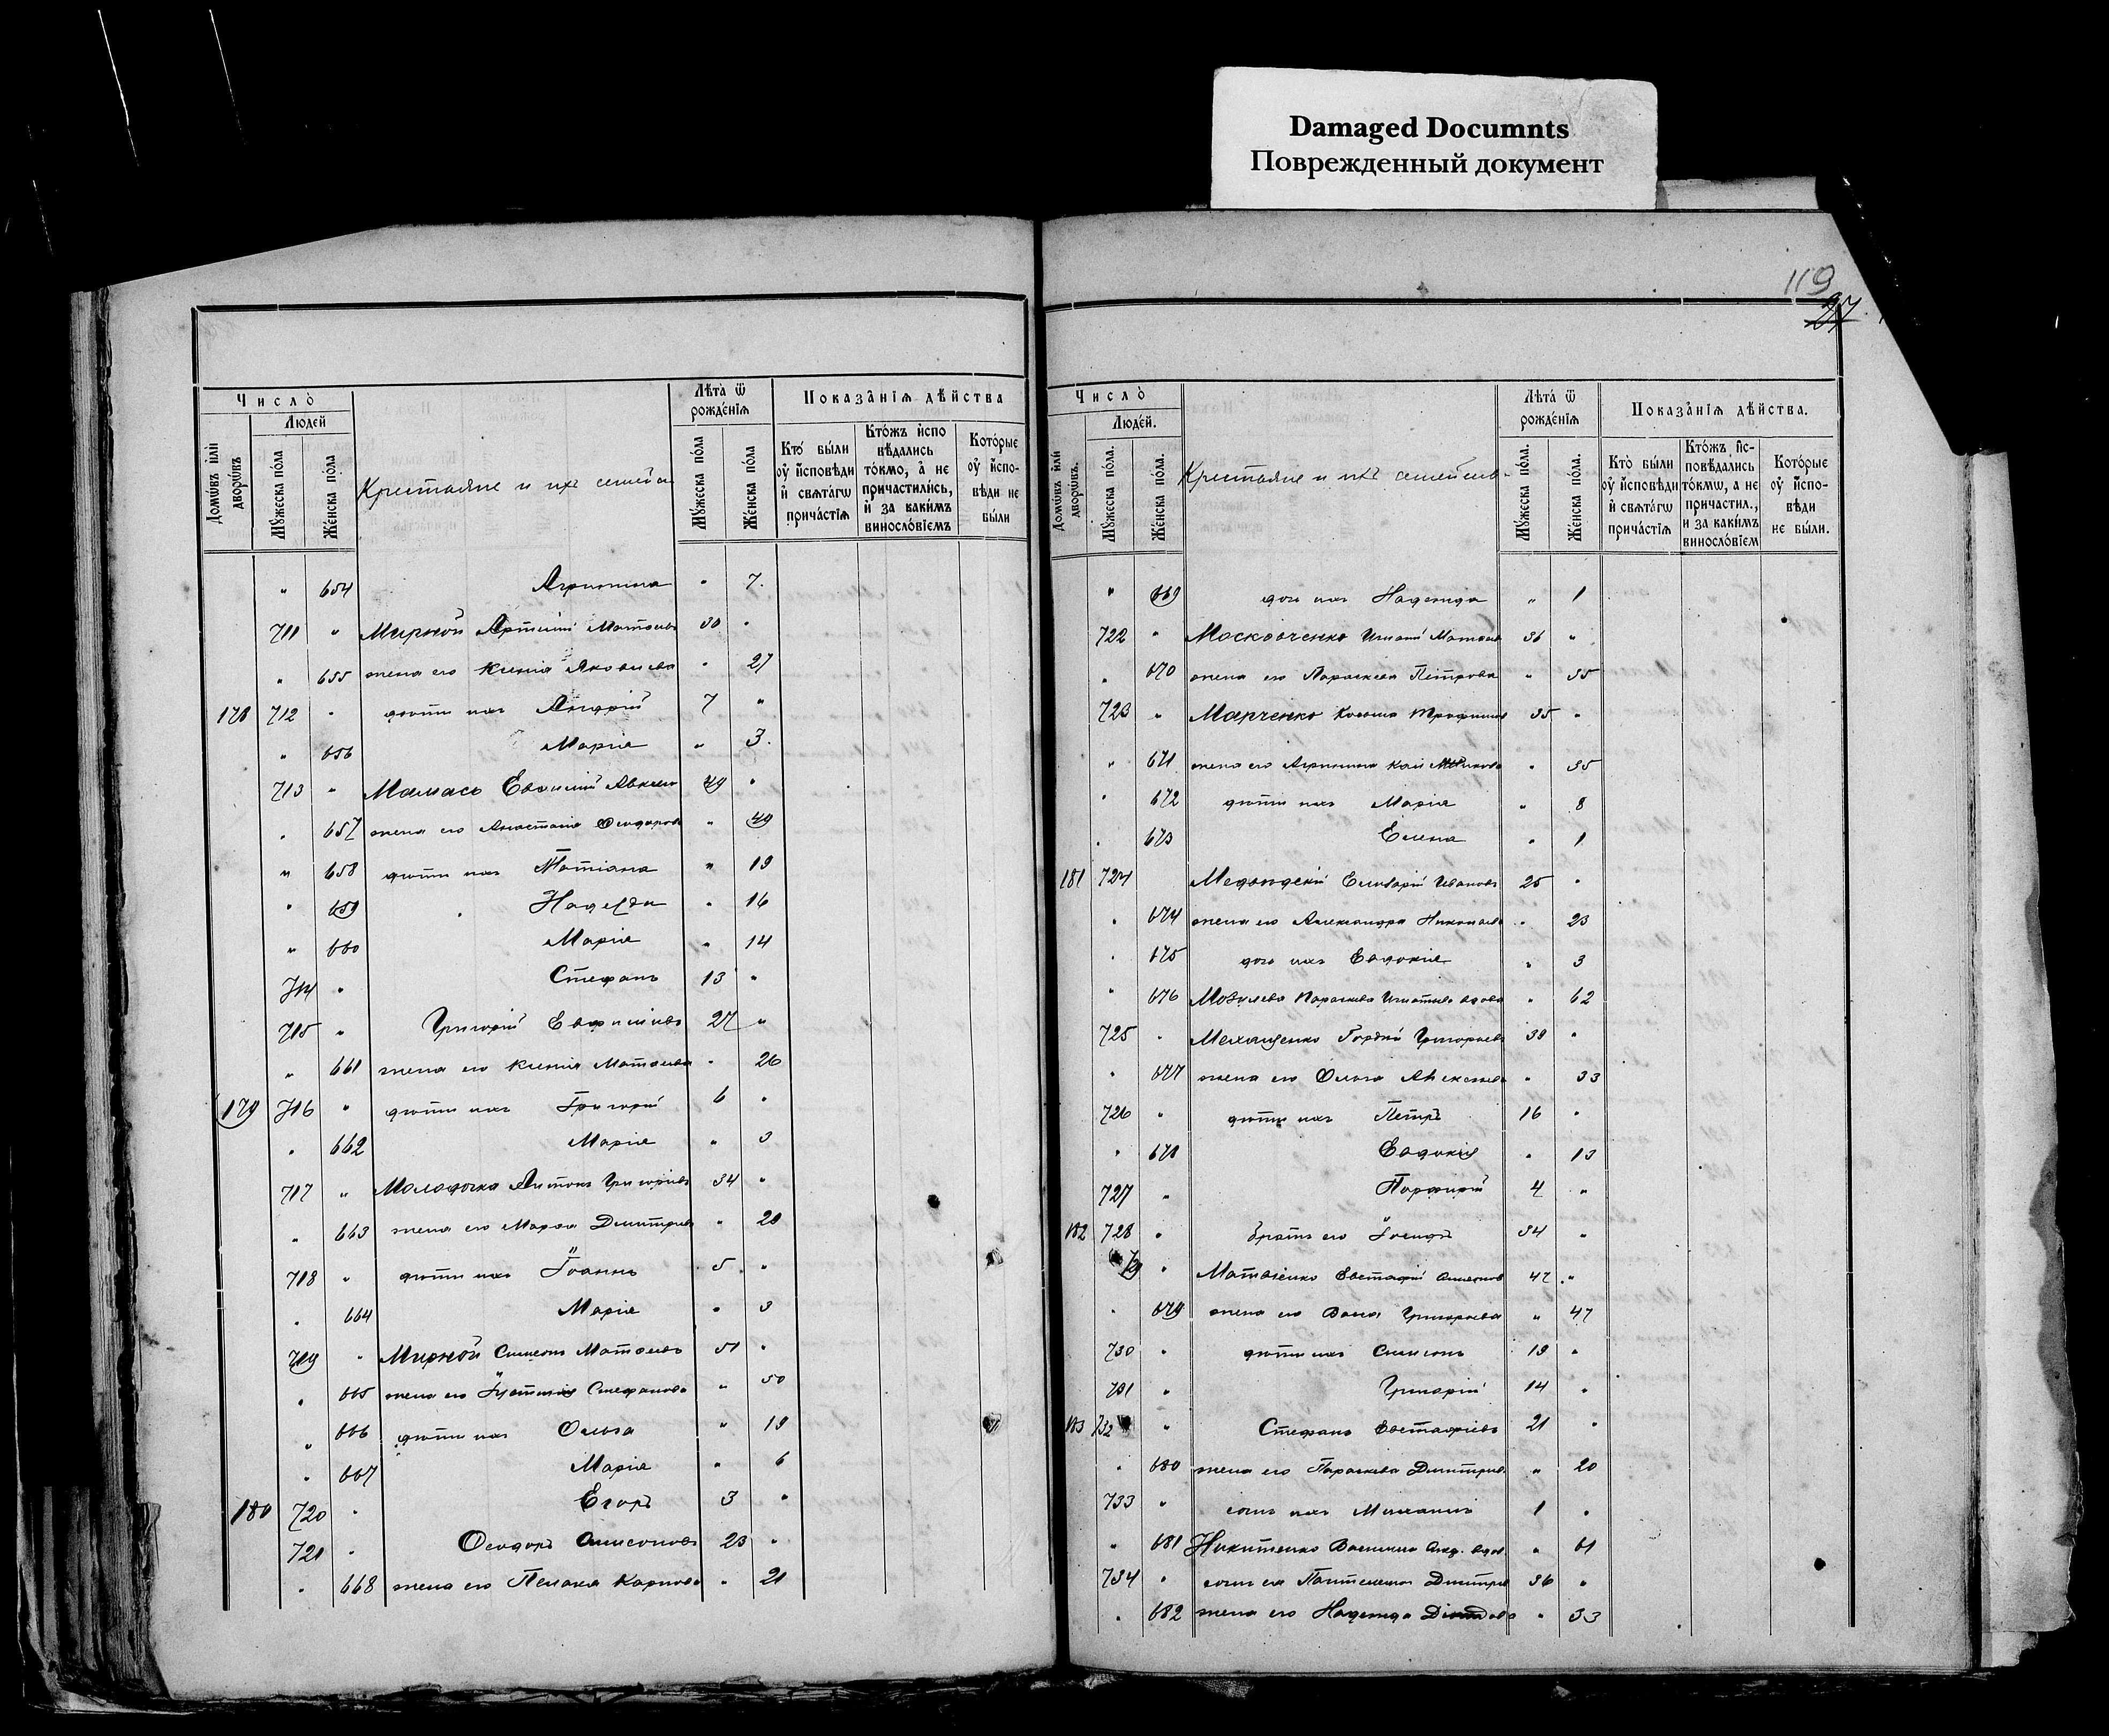 Damaged Documnts
Поврежденный документ
119
27.
Число
Людей
Домѡвъ или дворѡвъ
Мꙋжеска пола
Женска пола
Крестьяне и ихъ семейс
Лѣта ѿ рожденїя
Мꙋжеска пола
Женска пола
Показанїя дѣйства
Кто были оу исповѣди и свѧтагѡ причастїя
Ктожъ испо вѣдались токмо, а не причастились, и за какимъ винословїемъ
Которые оу испо- вѣди не были
" 654 Агрипина " 7.
711 " Мирной Артемий Матвѣевъ 30 "
" 655 жена его Ксенія Яковлева " 27
178 712 " дѣти ихъ Андрей 7 "
" 656 Марія " 3.
713 " Мамась Евфимій 49 "
" 657 жена его Анастасія Ѳеодорова " 49
" 658 дѣти ихъ Татіана " 19
" 659 Надежда " 16
" 660 Марія " 14
714 " Стефанъ 13 "
715 " Григорій Евфиміевъ 27 "
" 661 жена его Ксенія Матвѣева " 26
179 716 " дѣти ихъ Григорій 6 "
" 662 Марія " 3
717 " Молодочка Антонъ Григоріевъ 34 "
" 663 жена его Марѳа Дмитріев " 28
718 " дѣти ихъ Іоаннъ 5 "
" 664 Марія " 3
719 " Мирной Симеонъ Матвѣевъ 51 "
" 665 жена его Стефанова " 50
" 666 дѣти ихъ Ольга " 19
" 667 Марія " 6
180 720 " Егоръ 3 "
721 " Ѳеодоръ Симеоновъ 23 "
" 668 жена его Пелагія Карпова " 21
Число
Людей.
Домѡвъ или дворѡвъ.
Мꙋжеска пола.
Женска пола.
Крестьяне и ихъ семейств
Лѣта ѿ рожденїя
Мꙋжеска пола.
Женска пола.
Показанїя дѣйства.
Кто были оу исповѣди и свѧтагѡ причастїя
Ктожъ ис- повѣдались токмѡ, а не причастил., и за какимъ винословїем
Которые оу испо- вѣди не были.
" 669 дочь ихъ Надежда " 1
722 " Москов­ченко Игнатій Матвѣев 36 "
" 670 жена его Параскева Петрова " 35
723 " Марченко Косьма Трофимов 35 "
" 671 жена его Агрипина " 35
" 672 дѣти ихъ Марія " 8
" 673 Елена " 1
181 724 Елевѳерій Ивановъ 25 "
" 674 жена его Александра Николаева " 23
" 675 дочь ихъ Евдокія " 3
" 676 Параскева Игнатіева вдова " 62
725 " Гордѣй Григорьевъ 38 "
" 677 жена его Ольга Алексѣева " 33
726 " дѣти ихъ Петръ 16 "
" 678 Евдокія " 13
727 " Порфирій 4 "
182 728 " братъ его Іосифъ 34 "
729 " Матвіенко Евстафій Симеонов 47 "
" 679 жена его Васса Григорьева " 47
730 " дѣти ихъ Симеонъ 19 "
731 " Григорій 14 "
183 732 " Стефанъ Евстафіевъ 21 "
" 680 жена его Параскева Дмитріев. " 20
733 " сынъ ихъ Михаилъ 1 "
" 681 Никитенко Василиса вдов. " 61
734 " сынъ ея Пантелеимон Дмитріев 36 "
" 682 жена его Надежда " 33